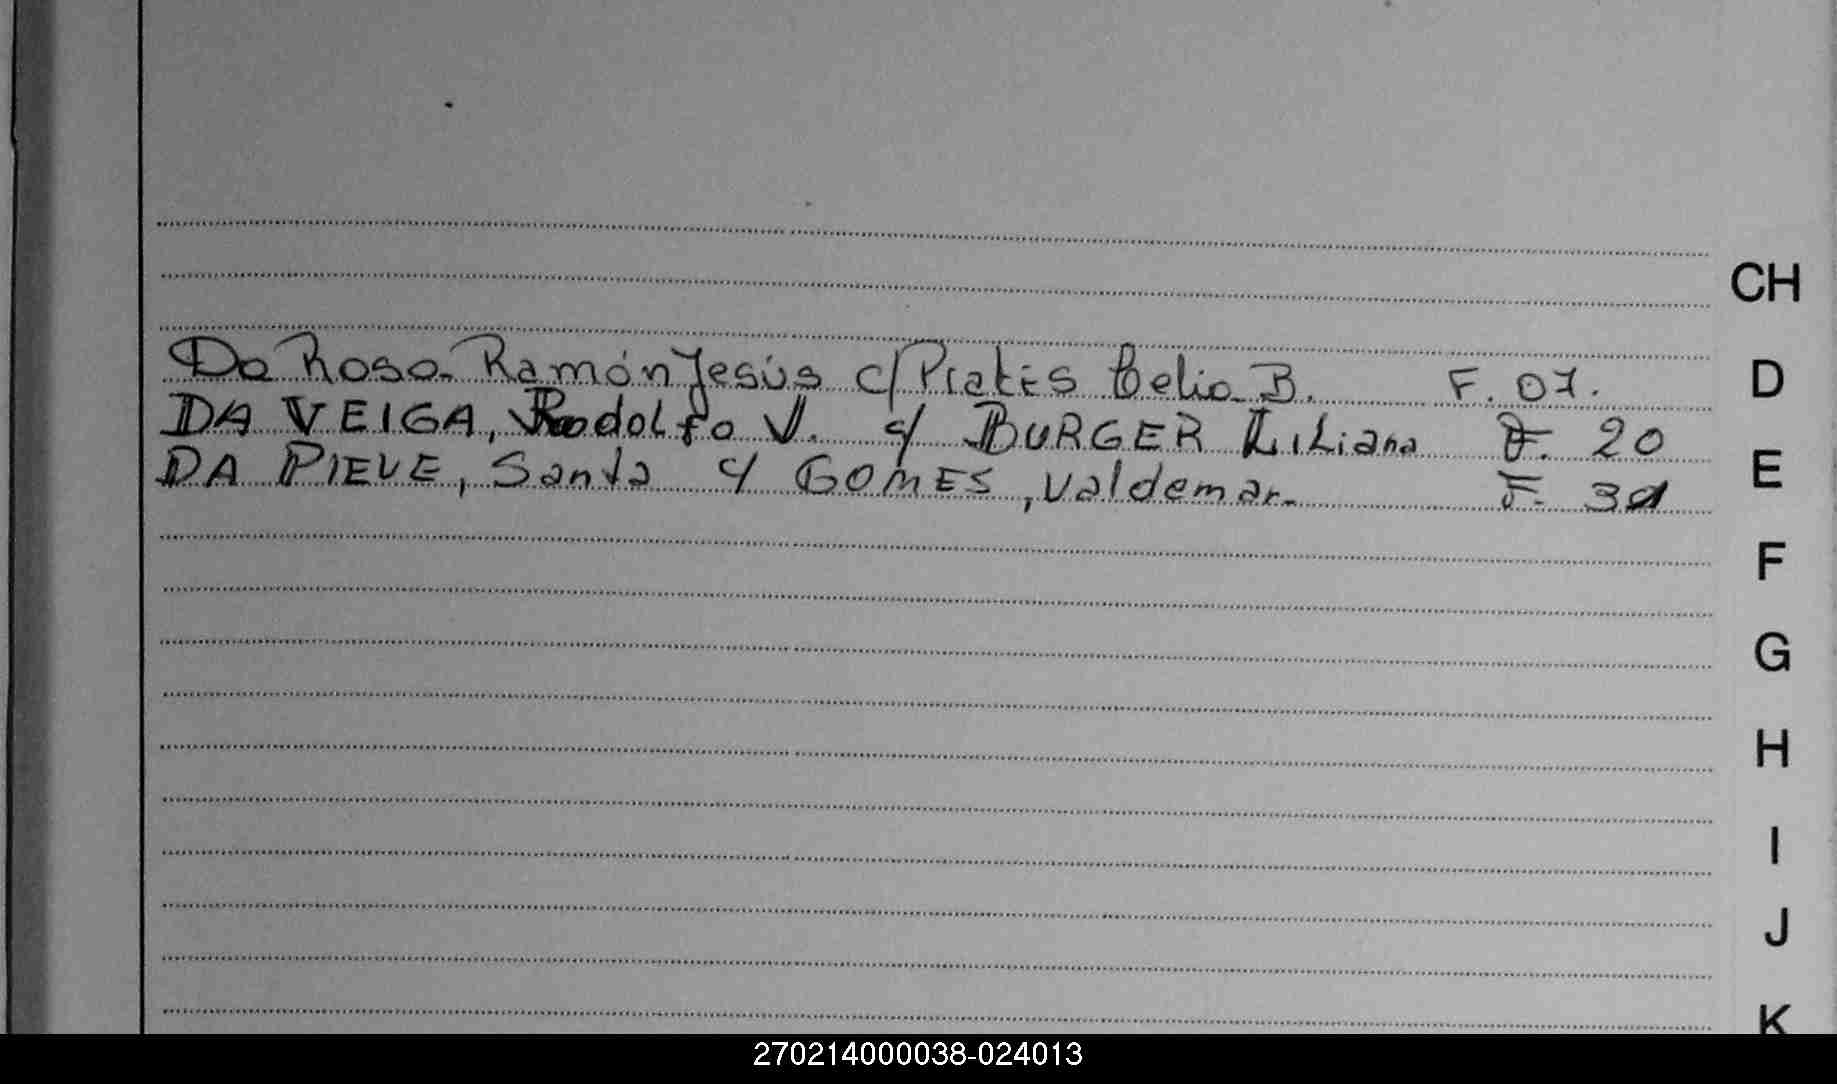 CH
Da Rosa Ramón Jesús c/ Prates Celia B. F. 07.
D
DA VEIGA, Rodolfo V. c/ BURGER Liliana F. 20
E
DA PIEVE, Santa c/ GOMES, Valdemar. F.
F
G
H
I
J
K
270214000038-024013